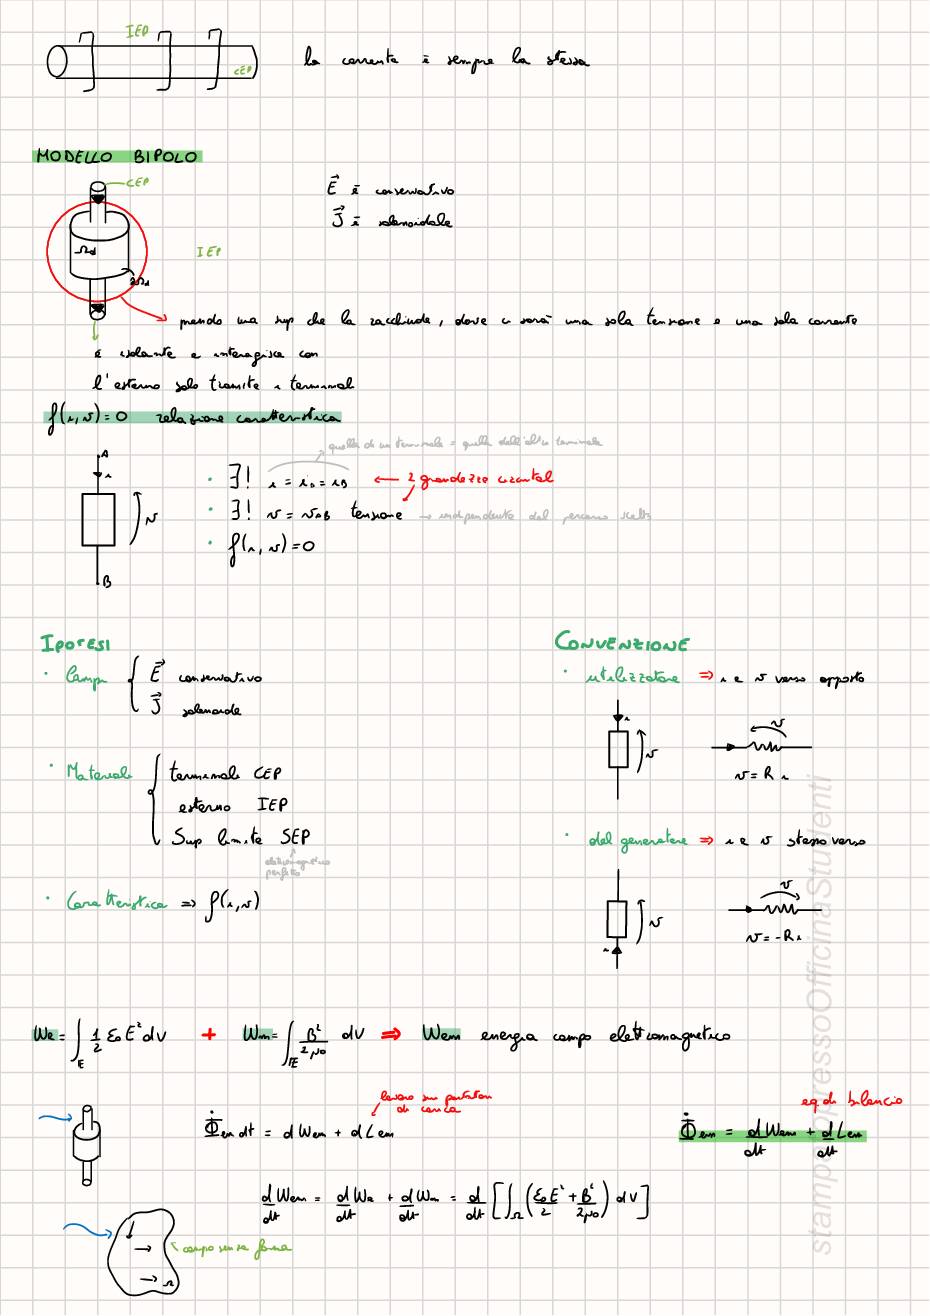 IEP
CEP
la corrente è sempre la stessa
MODELLO BIPOLO
CEP
E è conservativo
J è solenoidale
Ωd
IEP
∂Ωd
prendo una sup che la racchiude, dove ci sarà una sola tensione e una sola corrente
è isolante e interagisce con
l'esterno solo tramite i terminali
f(i,v)=0 relazione caratteristica
quella di un terminale = quella dell'altro terminale
A
i
v
B
• ∃! i = iA = iB ← 2 grandezze orizzontali
• ∃! v = vAB tensione → indipendente dal percorso scelto
• f(i,v)=0
IPOTESI
• Campi { E conservativo
J solenoidale
• Materiale { terminale CEP
esterno IEP
Sup limite SEP
elettromagnetico
perfetto
• Caratteristica ⇒ f(i,v)
CONVENZIONE
• utilizzatore ⇒ i e v verso opposto
i
v
v
v = R i
• del generatore ⇒ i e v stesso verso
v
i
v
v = -R i
We = ∫E 1/2 ε0 E² dV + Wm = ∫E B²/2μ0 dV ⇒ Wem energia campo elettromagnetico
lavoro sui portatori
di carica
Φem dt = dWem + dLem
eq di bilancio
Φem = dWem/dt + dLem/dt
dWem/dt = dWe/dt + dWm/dt = d/dt [∫Ω (ε0E²/2 + B²/2μ0) dV]
campo senza forma
Ω
stampato presso OfficinaStudenti